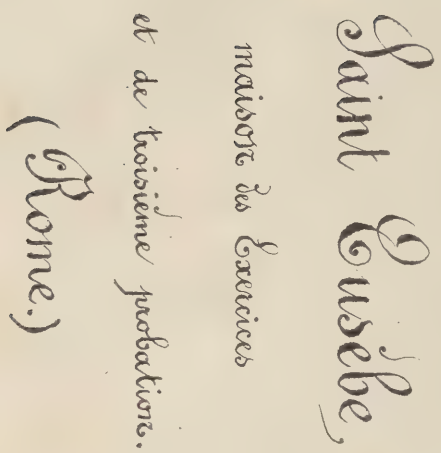 Saint Eusèbe,
maison des Exercices
et de troisième probation.
(Rome.)